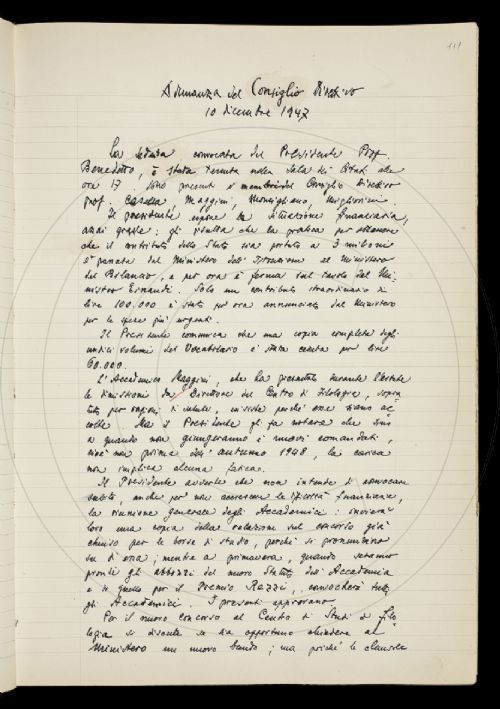 111
Adunanza del Consiglio Direttivo
10 dicembre 1947
La seduta convocata dal Presidente Prof.
Benedetto, è stata tenuta nella Sala dei Citati alle
ore 17. Sono presenti i membri del Consiglio Direttivo
prof. Casella, Maggini, Momigliano, Migliorini.
Il presidente espone la situazione finanziaria,
assai grave: gli risulta che la pratica per ottenere
che il contributo dello Stato sia portato a 3 milioni
è passata dal Ministero dell'Istruzione al Ministero
del Bilancio, e per ora è ferma sul tavolo del Mi-
nistro Einaudi. Solo un contributo straordinario di
lire 100.000 è stato per ora annunciato dal Ministero
per le spese più urgenti.
Il Presidente comunica che una copia completa degli
undici volumi del Vocabolario è stata ceduta per lire
60.000.
L'Accademico Maggini, che ha presentato durante l'estate
le dimissioni da Direttore del Centro di Filologia, sopra-
tutto per ragioni di salute, insiste perché esse siano ac-
colte. Ma il Presidente gli fa notare che sino
a quando non giungeranno i nuovi comandati,
cioè non prima dell'autunno 1948, la carica
non implica alcuna fatica.
Il Presidente avverte che non intende di convocare
subito, anche per non accrescere le difficoltà finanziarie,
la riunione generale degli Accademici: invierà
loro una copia della relazione sul concorso già
chiuso per le borse di studio, perché si pronunzino
su di essa; mentre a primavera, quando saranno
pronti gli abbozzi del nuovo Statuto dell'Accademia
e di quello per il Premio Rezzi, convocherà tutti
gli Accademici. I presenti approvano.
Per il nuovo concorso al Centro di Studi di Filo-
logia si discute se sia opportuno chiedere al
Ministero un nuovo bando; ma poiché le clausole